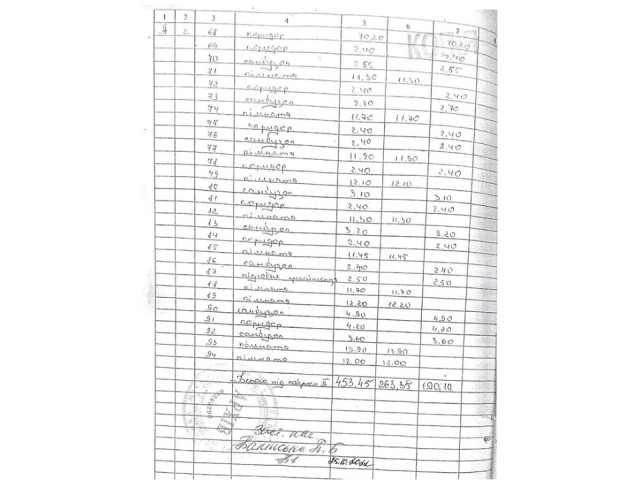 1 2 3 4 5 6 7
А 2 68 коридор 70,20 70,20
69 коридор 2.40 2.40
70 санвузол 2.55 2.55
71 кімната 11.30 11.30
72 коридор 2.40 2.40
73 санвузол 2.70 2.70
74 кімната 11.70 11.70
75 коридор 2.40 2.40
76 санвузол 2.40 2.40
77 кімната 11.90 11.90
78 коридор 2.40 2.40
79 кімната 12.10 12.10
80 санвузол 3.10 3.10
81 коридор 2.40 2.40
82 кімната 11.30 11.30
83 санвузол 3.20 3.20
84 коридор 2.40 2.40
85 кімната 11.45 11.45
86 санвузол 2.40 2.40
87 підсобне приміщення 2.50 2.50
88 кімната 11.70 11.70
89 кімната 12.20 12.20
90 санвузол 4.90 4.90
91 коридор 4.20 4.20
92 санвузол 3.60 3.60
93 кімната 13.90 13.90
94 кімната 12.00 12.00
Всього під поверхи II 453,45 263,35 190,10
КОПІЯ
АРХІВ